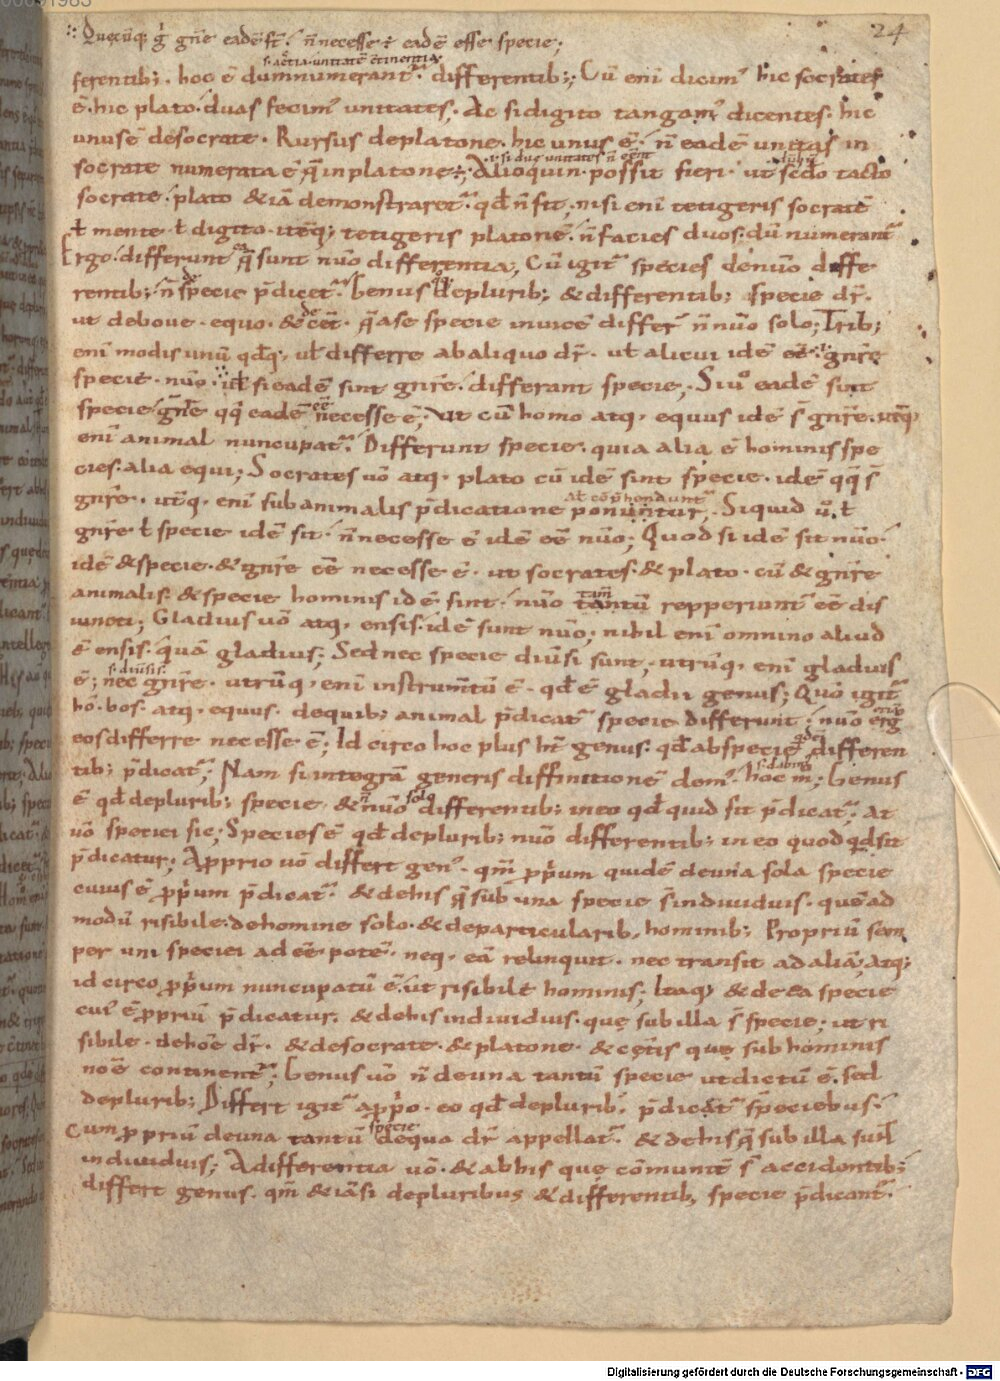 24
∴ Quęcūq; g̃ gñe eadē st̄. n̄ necesse ē eadē esse specie;
ferentib;. hoc ē dum numerant᷑ differentib;; Cū eni dicim᷒ hic socrates
ē. hic plato. duas fecim᷒ unitates. Ac si digito tangam᷒ dicentes. hic
unus ē de socrate. Rursus de platone. hic unus ē. n̄ eadē unitas in
socrate numerata ē q̄ in platone; Alioquin possit fieri. ut sc̄do tacto
socrate. plato & iā demonstraret᷑. qđ n̄ fit, nisi eni tetigeris socratē
ł mente ł digito. itēq; tetigeris platonē. n̄ facies duos. dū numerant᷑
Ergo. differunt q̄ sunt nūo differentia; Cū igit᷑ species de nūo diffe
rentib; n̄ de specie p̄dicet᷑. Genus de plurib; & differentib; specie dr̄.
ut de boue. equo. & de cet̄. q̄ a se specie inuicē differ̄ n̄ nūo solo; Trib;
eni modis unū qđq; uł differre ab aliquo dr̄. uł alicui idē eē. gn̄re
specie. nūo. ∴ uł si eadē sint gn̄re. differant specie; Si u᷒ eadē sint
specie gn̄re qq; eadē eē necesse ē; Ut cū homo atq; equus idē s̄ gn̄re. utq;
eni animal nuncupat᷑. Differunt specie. quia alia ē hominis spe
cies. alia equi; Socrates uō atq; plato cū idē sint specie. idē qq; s̄
gn̄re. utq; eni sub animalis p̄dicatione ponuntur. Si quid u᷒ ł
gn̄re ł specie idē sit. n̄ necesse ē idē eē nūo; Quod si idē sit nūo.
idē & specie. & gn̄re eē necesse ē. ut socrates & plato. cū & gn̄re
animalis. & specie hominis idē sint. nūo tantū repperiunt᷑ eē dis
iuncti; Gladius uō atq; ensis. idē sunt nūo; nihil eni omnino aliud
ē ensis. quā gladius; Sed nec specie diūsi sunt. utrūq; eni gladius
ē; nec gn̄re. utrūq; eni instrum̄tū ē. qđ ē gladii genus; Quō igit᷑
hō. bos. atq; equus. de quib; animal p̄dicat᷑ specie differunt. nūo erg
eos differre necesse ē; Id circo hoc plus ht̄ genus. qđ ab specie differen
tib; p̄dicat᷑; Nam si integrā generis diffinitionē dem᷒. hoc m̄; Genus
ē qđ de plurib; specie. & n̄ nūo solo differentib; in eo qđ quid sit p̄dicat᷑; At
uō speciei sic; Species ē qđ de plurib; nūo differentib; in eo quod qđ sit
p̄dicatur; A p̄prio uō differt gen᷒. qm̄ p̄prium quidē de una sola specie
cuius ē p̄prium p̄dicat᷑. & de his q̄ sub una specie s̄ indiuiduis. quē ad
modū risibile. de homine solo. & de particularib; hominib; Propriū sem
per uni speciei adeē potē. neq; eā relinquit. nec transit ad aliā; atq;
id circo p̄prium nuncupatū ē. ut risibile hominis; Itaq; & de ea specie
cui᷒ ē propriū p̄dicatur. & de his indiuiduis. quę sub illa s̄ specie; ut ri
sibile. de hoē dr̄. & de socrate. & platone. & cęt̄is quę sub hominis
noē continent᷑; Genus uō n̄ de una tantū specie ut dictū ē. sed
de plurib; Differt igit᷑ a p̄p̄o. eo qđ de plurib; p̄dicat᷑ speciebus.
Cum propriū de una tantū specie de qua dr̄ appellat᷑. & de his q̄ sub illa sunt
indiuiduis; A differentia uō. & ab his quę cōmunit̄ s̄ accidentib;
differt genus. qm̄ & iā si de pluribus & differentib; specie p̄dicant᷑.
Digitalisierung gefördert durch die Deutsche Forschungsgemeinschaft - DFG